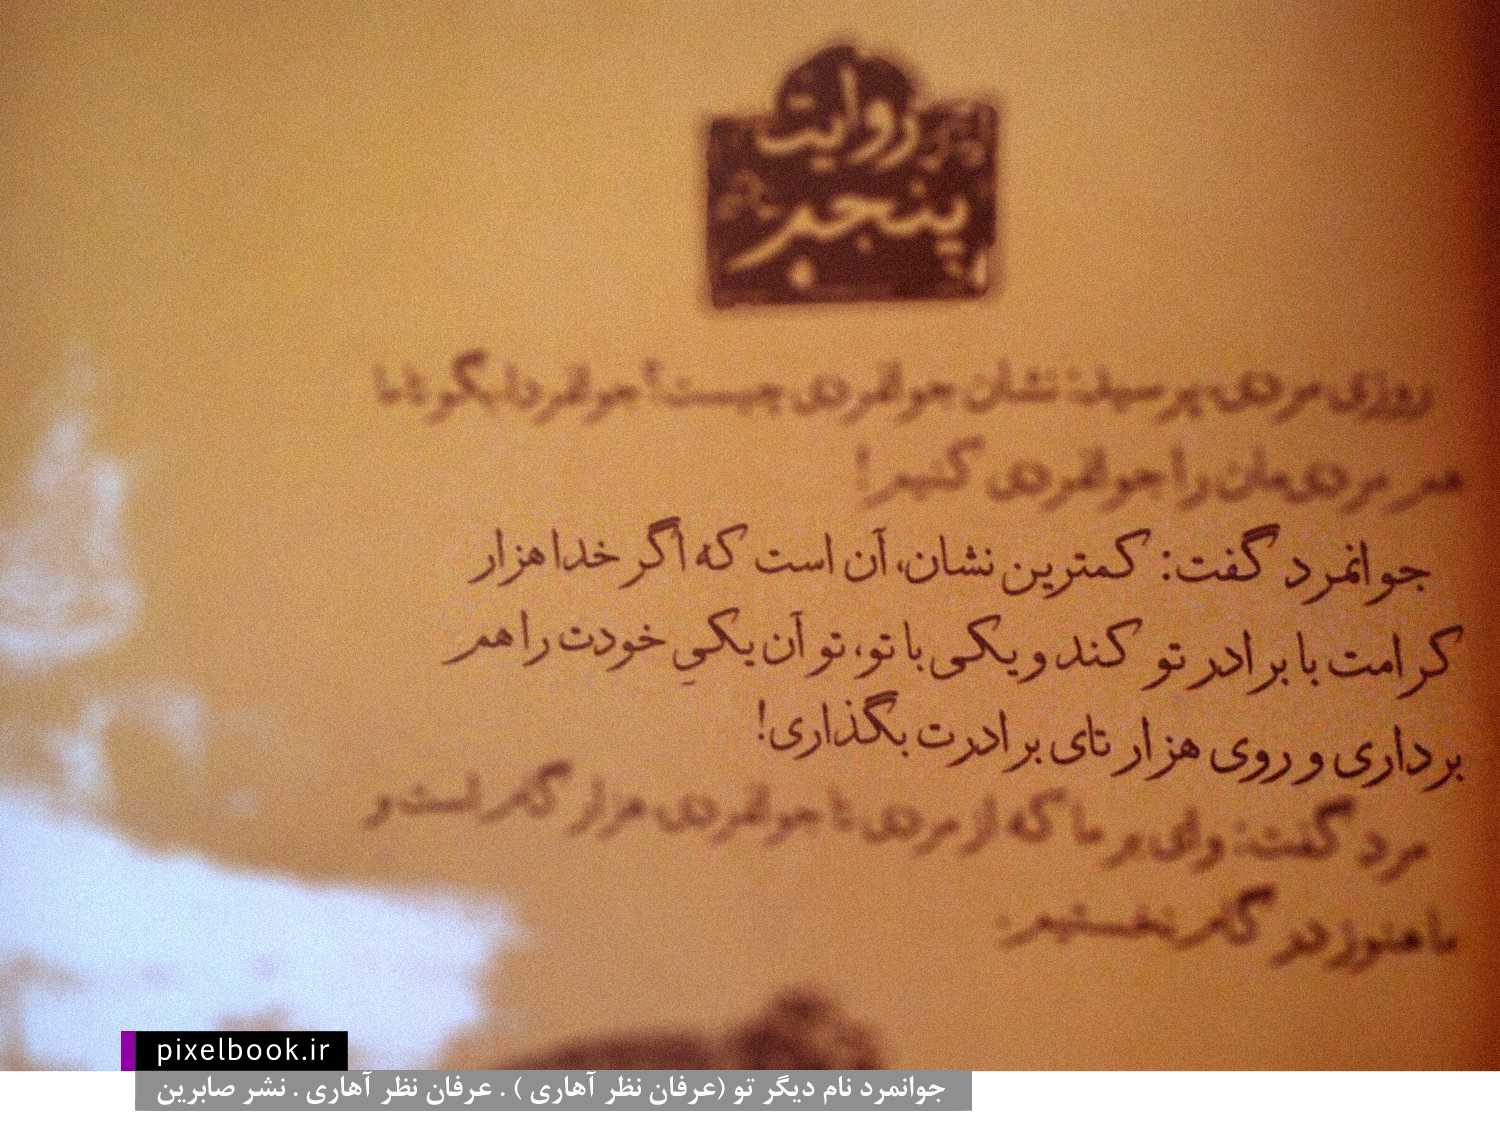 روایت
پنجم
روزی مردی پرسید: نشان جوانمردی چیست؟ جوانمردا، بگو تا ما
هم مردی‌مان را جوانمردی کنیم!
جوانمرد گفت: کمترین نشان، آن است که اگر خدا هزار
کرامت با برادر تو کند و یکی با تو، تو آن یکیِ خودت را هم
برداری و روی هزار تای برادرت بگذاری!
مرد گفت: وای بر ما که از مردی تا جوانمردی هزار گام است و
ما هنوز در گام نخستیم.
pixelbook.ir
جوانمرد نام دیگر تو (عرفان نظر آهاری ) . عرفان نظر آهاری . نشر صابرین